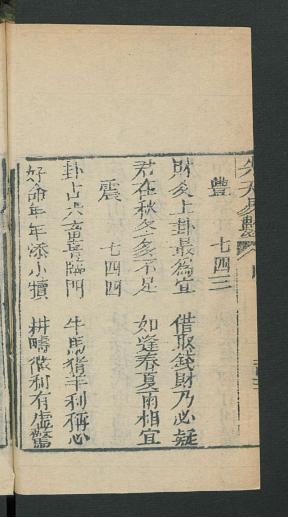 豐　七四三
財爻上卦最為宜　借取錢財乃必疑
君在秋冬多不足　如逢春夏兩相宜
震　七四四
卦占六畜喜臨門　牛馬猪羊利稱心
好命年年添小犢　耕疇微利有虛驚